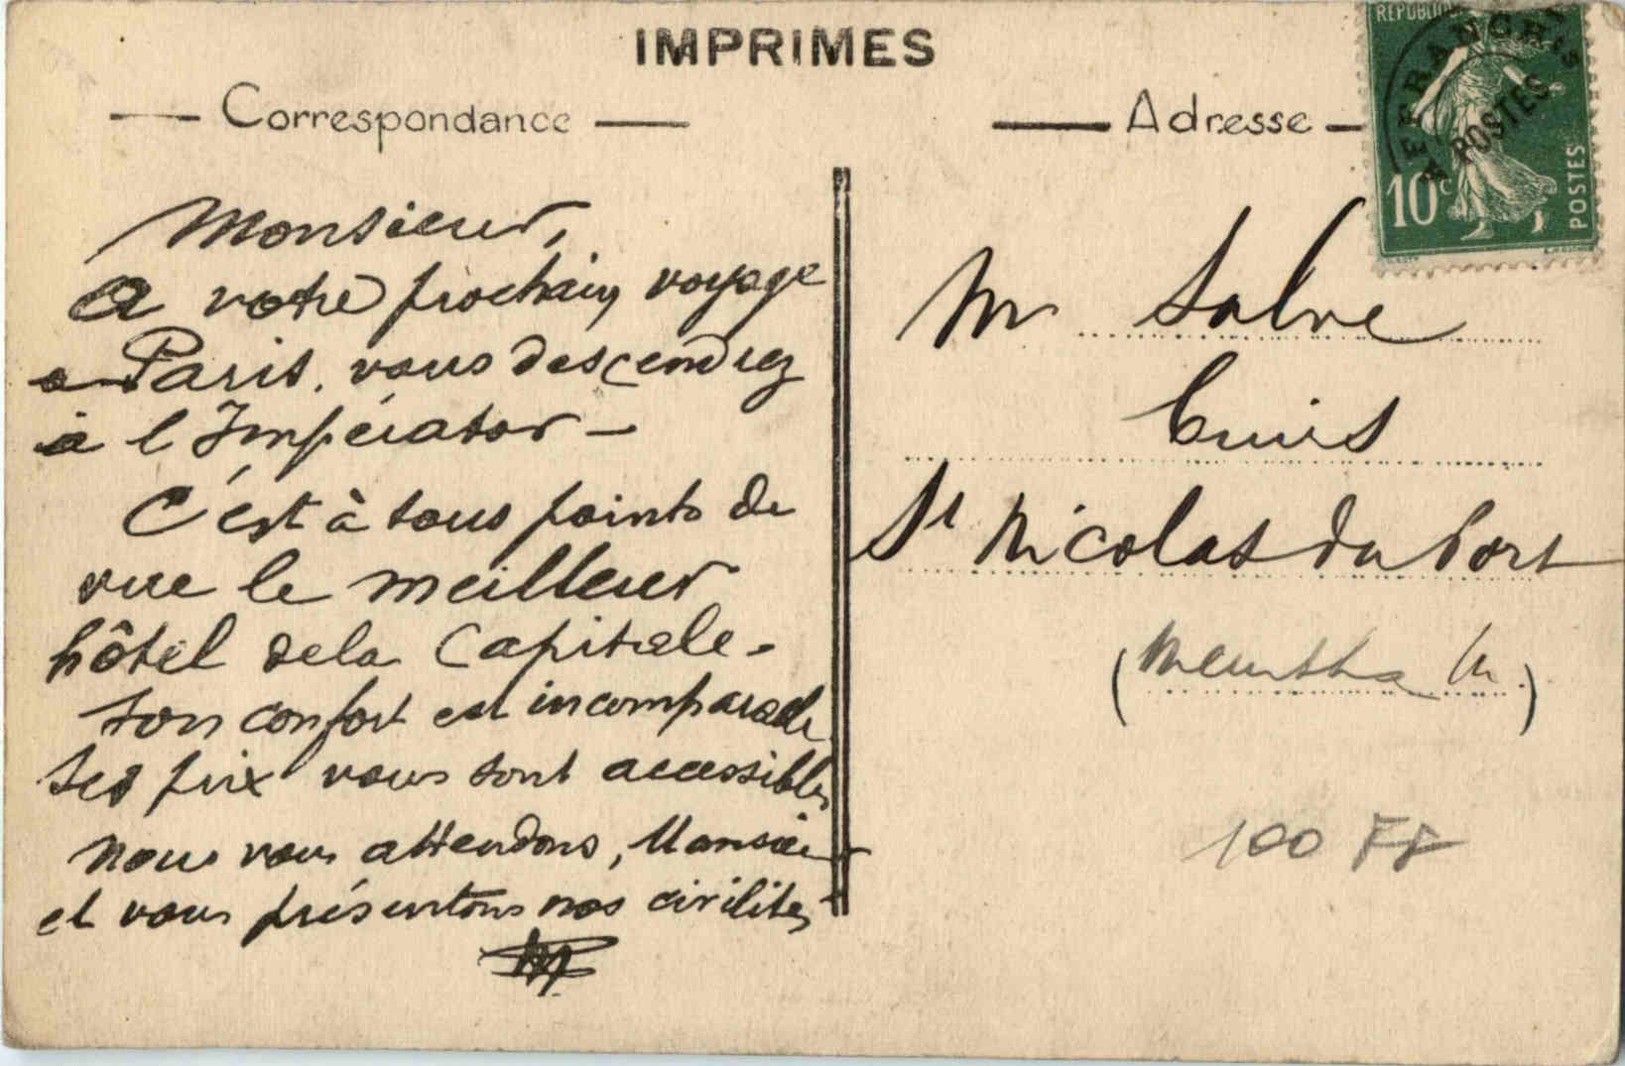 IMPRIMES
Correspondance
Monsieur,
A votre prochain voyage
a Paris, vous descendrez
à l'Impérator –
C'est à tous points de
vue le meilleur
hôtel de la Capitale.
Son confort est incomparable
Ses prix vous sont accessibles
Nous vous attendons, Monsieur
et vous présentons nos civilités
Adresse
REPUBLIQUE
AFFRANCHTS
POSTES
10c
POSTES
M Salve
Cuirs
St Nicolas du Port
(Meurthe M)
100 FF